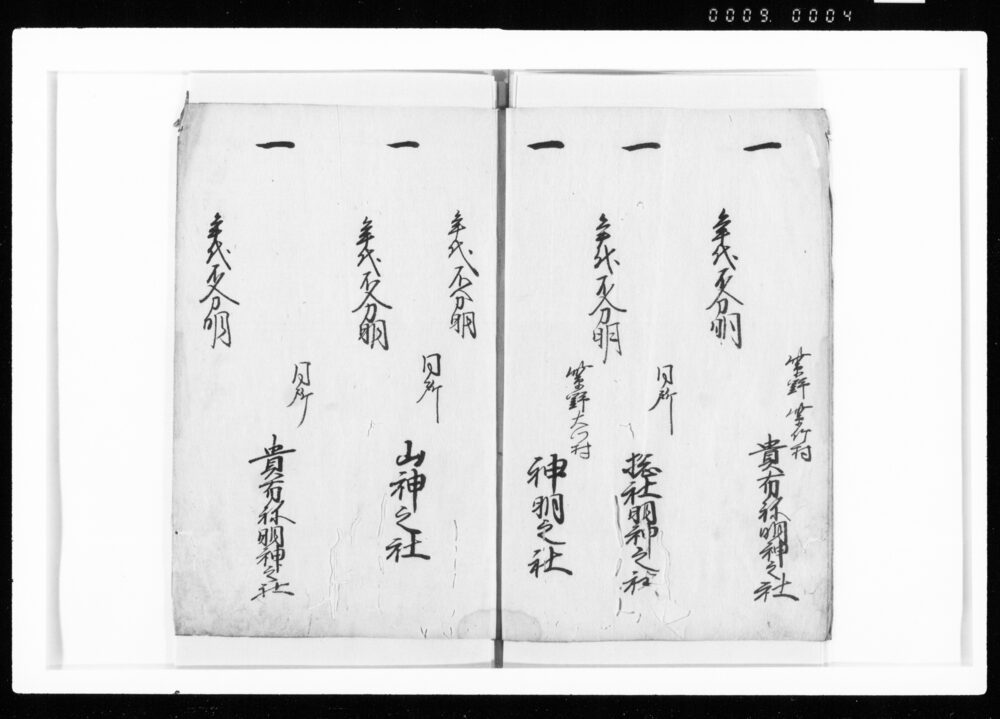 0009. 0004
紫野 紫竹村
一 貴布祢明神之社
年代不分明
同所
一 捴社明神之社
年代不分明
紫野大门村
一 神明之社
年代不分明
同所
一 山神之社
年代不分明
同所
一 貴布祢明神之社
年代不分明